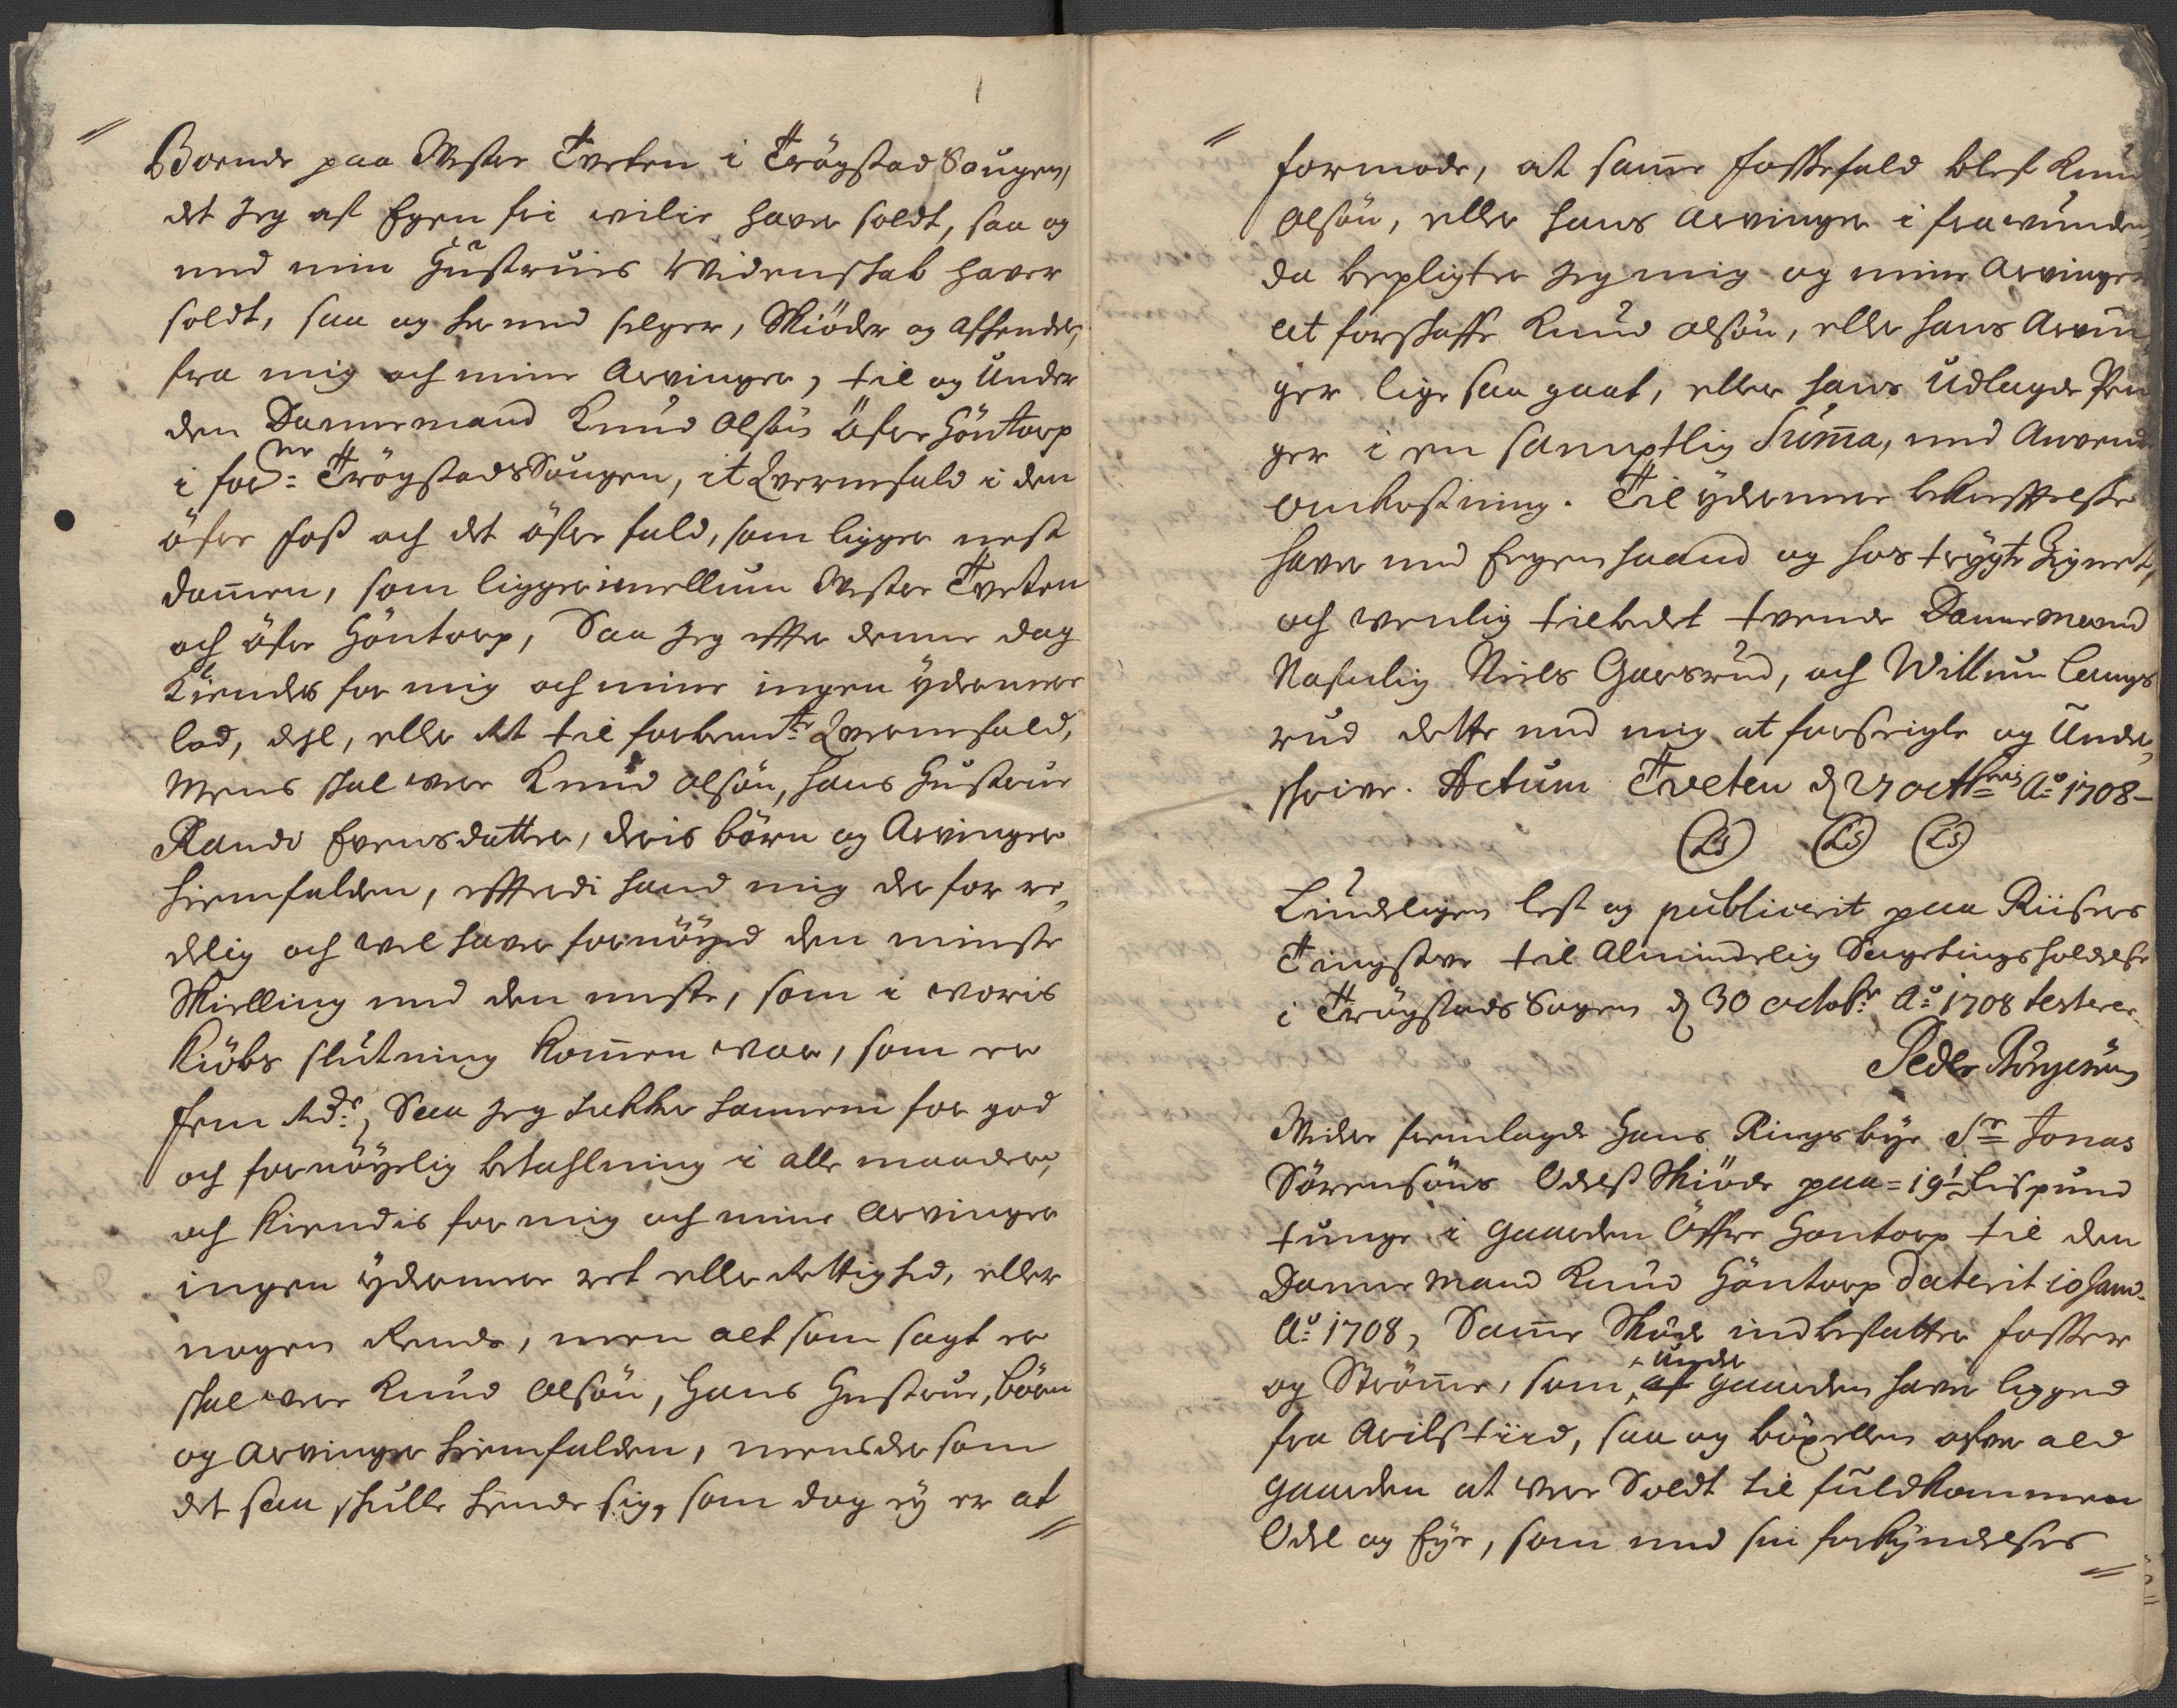 Boende paa Vester Tveten i Trögstad Sougen,
det Jeg af Egen fri vilie haver soldt, saa og
med min Hustruis Widenskab haver
soldt, saa og her med selger, Skiöder og afhender,
fra mig och mine Arvinger, til og Under
den Dannemand Knud Olsön Öfre Höntorp
i forne: Trögstads Sougen, it Qvernefald i den
öfre foss och det öfre fald, som ligger nest
dam̅en, som ligger imellum Vester Tveten
och öfre Höntorp, Saa Jeg effter denne dag
Kiendes for mig och mine ingen ydermere
lod, dehl, eller ret til forbemte: Qvernefald,
Mens skal vere Knud Olsön, hans Hustrue
Rando Evensdatter, deris börn og Arvinger
hiemfalden, effterdi hand mig der for re„
delig och vel haver fornöyed den minste
Skielling med den meste, som i voris
Kiöbs slutning kom̅en var, som er
Fem Rdr:, Saa Jeg takker hannem for god
och fornöyelig betahlning i alle maader,
och Kiendis for mig och mine Arvinger
ingen ydermere ret eller Rettighed, eller
nogen Kende, men alt som sagt er
skal vere Knud Olsön, Hans Hustrue, börn
og Arvinger hiemfalden, mens der som
det saa skulle hende sig, som dog ey er at
formode, at sam̅e fossefald blef Knud
Olsön, eller hans Arvinger i fra vunden,
da bepligter Jeg mig og mine Arvinger
at forskaffe Knud Olsön, eller hans Arvin„
ger lige saa gaat, eller hans Udlagde Pen
ger i en samptlig Sum̅a, med Anvend
omkostning. Til ydermere bekreffttelse
haver med Egen haand og hos trygte Zignet,
och venlig tilbedet tvende Dannemænd
Nafnlig Niels Garsrud, och Willum Langs
rud dette med mig at forseigle og Under„
skrive. Actum Tveten d 27 octbris Ao 1708 –
LS LS LS
Lindeligen lest og publicerit paa Riisers
Tingstue til Almindelig Sagetings holdelse
i Trögstads Sogen d 30 octobr: Ao 1708 testerer
Peder Börgesen
Vider fremlagde Hans Ringsbye Sr Jonas
Sörensöns Odels Skiöde paa = 19½ Lispund
tunge i gaarden Öffre Hontorp til den
Dannemand Knud Höntorp daterit 10 Janv:
Ao 1708, Sam̅e Skiöde indbefatter fosser
og Ström̅e, som under af gaarden haver ligged
fra Arilstiid, saa og böxellen ofver ald
gaarden at vere Soldt til fuldkommen
Odel og Eye, som med sin forkyndelses